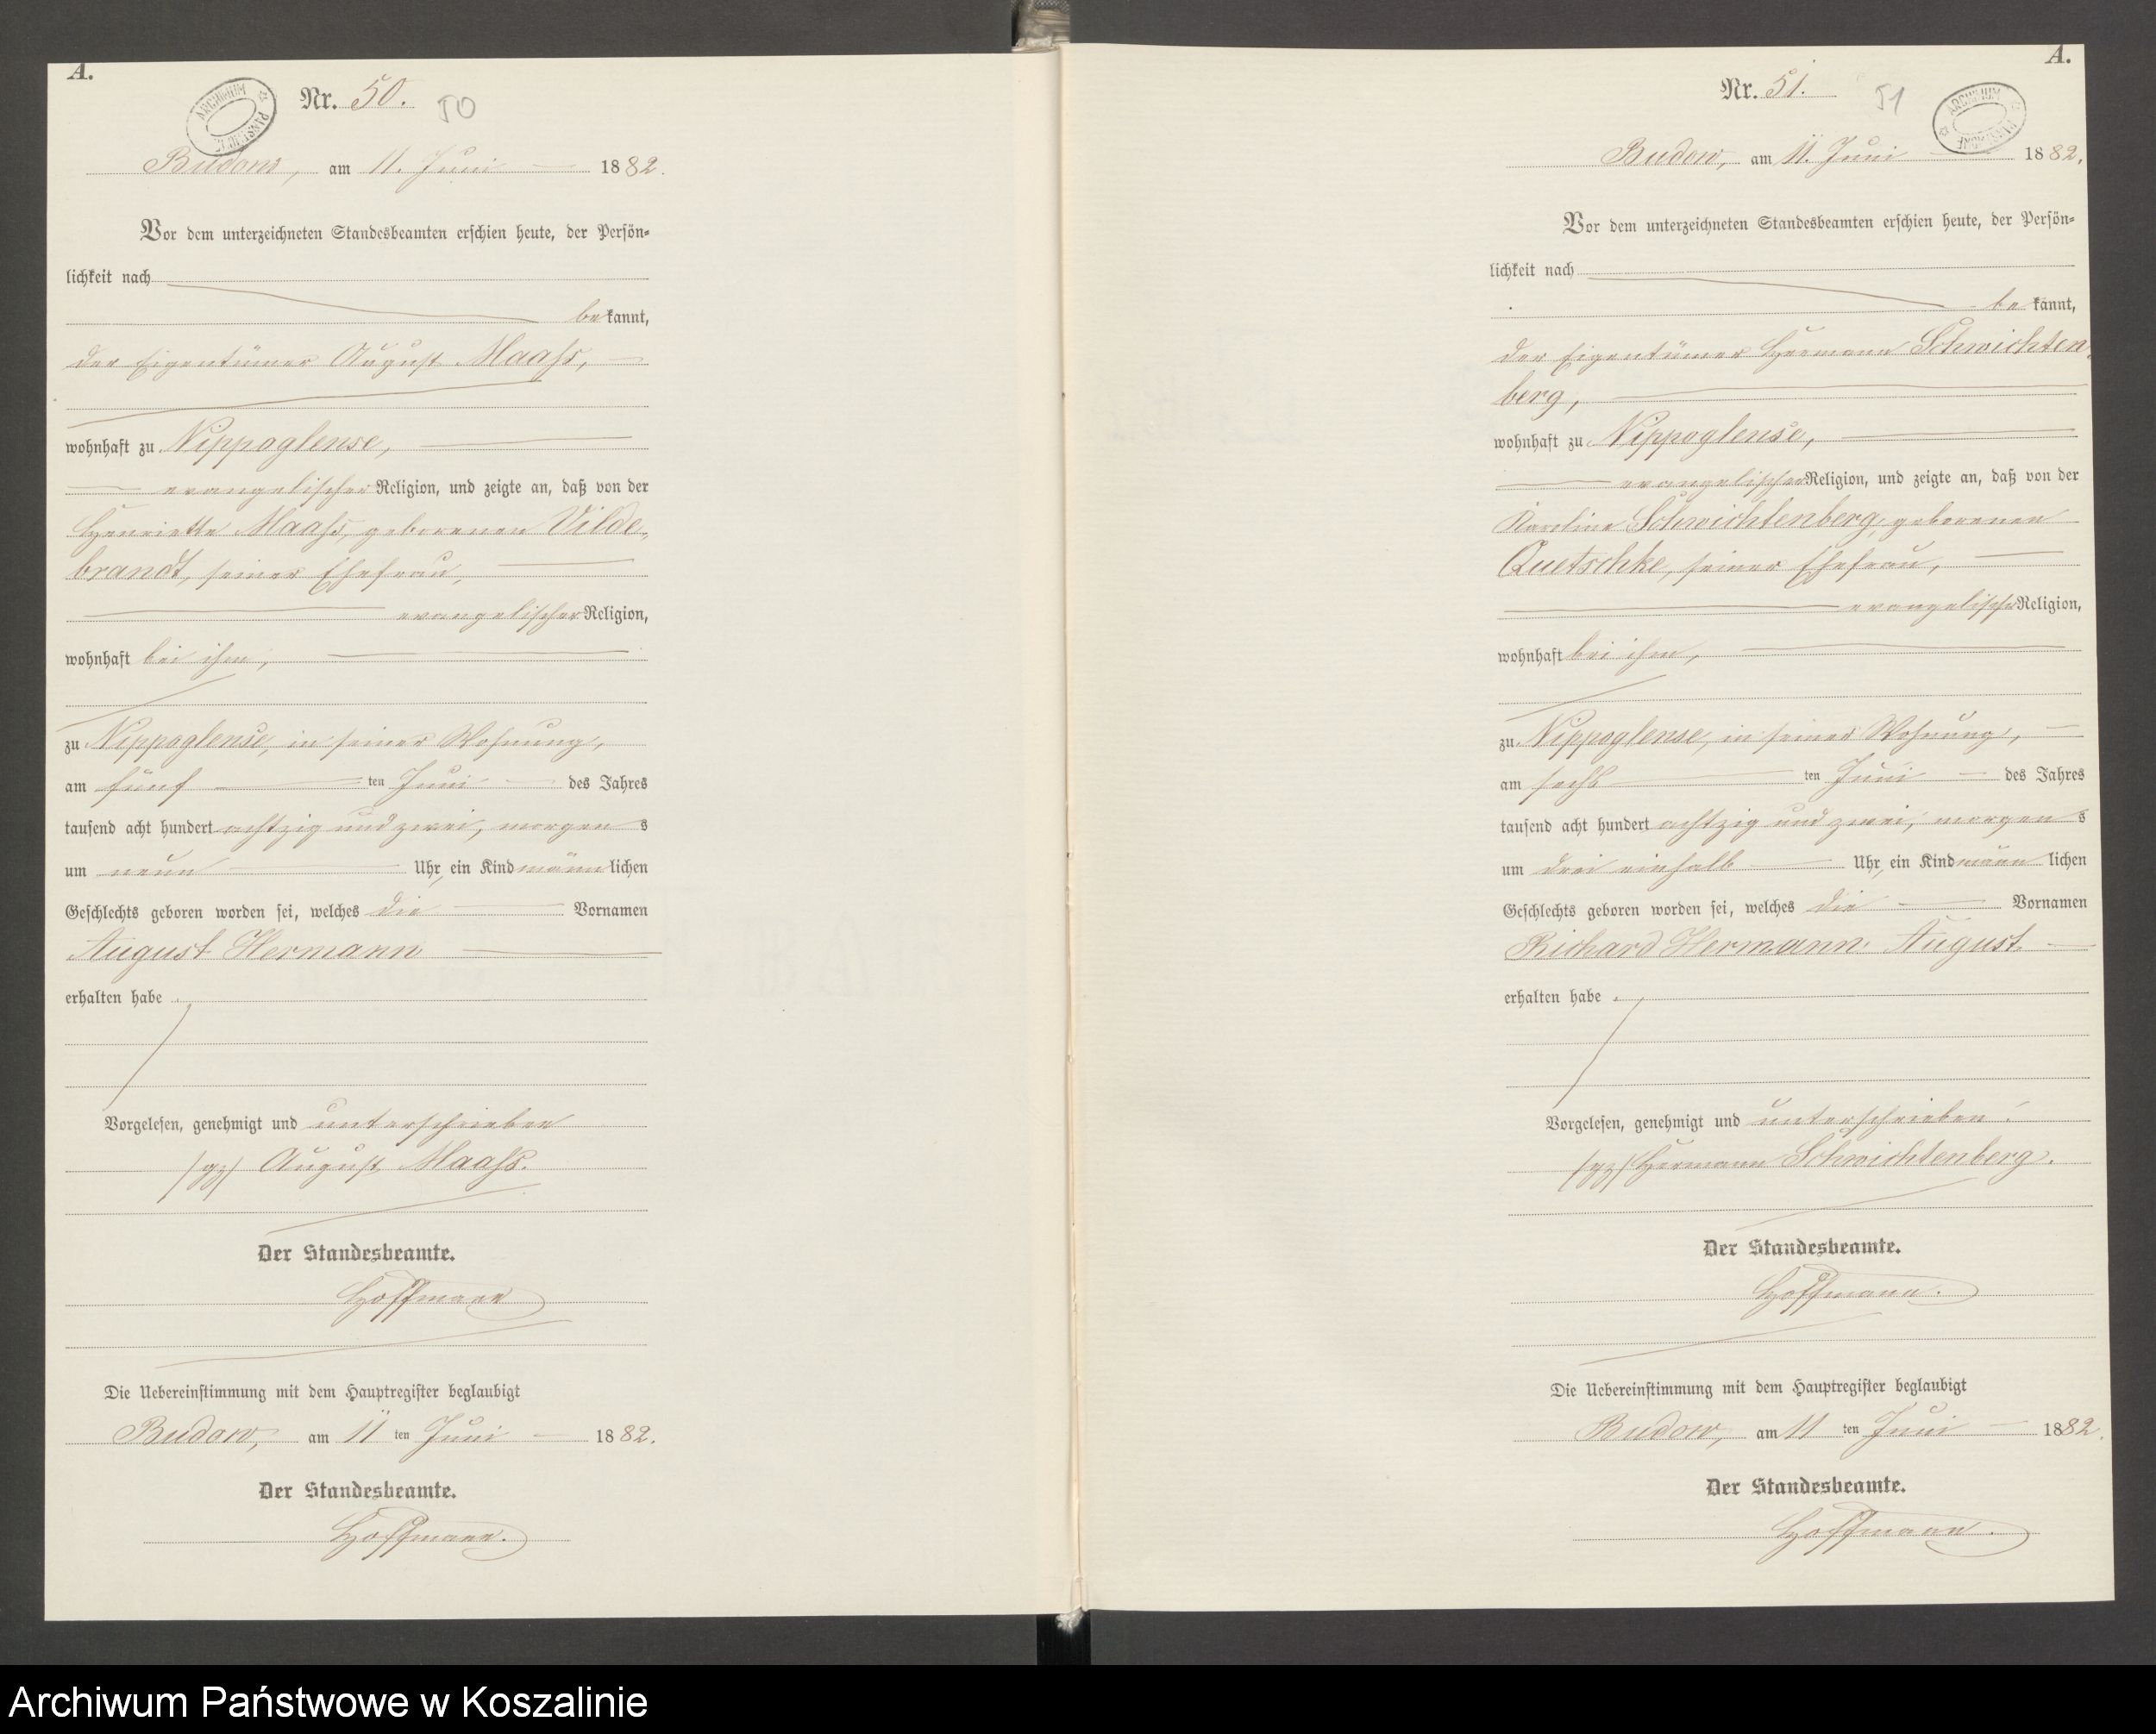 A.
Nr. 50. 50
ARCHIWUM PAŃSTWOWE
Budow, am 11. Juni 1882.
Vor dem unterzeichneten Standesbeamten erschien heute, der Persön-
lichkeit nach
bekannt,
der Eigentümer August Maahs,
wohnhaft zu Nippoglense,
evangelischer Religion, und zeigte an, daß von der
Henriette Maahs, geborenen Hilde-
brandt, seiner Ehefrau,
evangelischer Religion,
wohnhaft bei ihm,
zu Nippoglense, in seiner Wohnung,
am fünf ten Juni des Jahres
tausend acht hundert achtzig und zwei, morgens
um neun Uhr, ein Kind männlichen
Geschlechts geboren worden sei, welches die Vornamen
August Hermann
erhalten habe.
Vorgelesen, genehmigt und unterschrieben
/gz/ August Maahs.
Der Standesbeamte.
Hoffmann
Die Uebereinstimmung mit dem Hauptregister beglaubigt
Budow, am 11 ten Juni 1882.
Der Standesbeamte.
Hoffmann.
A.
Nr. 51. 51
ARCHIWUM PAŃSTWOWE
Budow, am 11. Juni 1882.
Vor dem unterzeichneten Standesbeamten erschien heute, der Persön-
lichkeit nach
bekannt,
der Eigentümer Hermann Schwichten-
berg,
wohnhaft zu Nippoglense,
evangelischer Religion, und zeigte an, daß von der
Karoline Schwichtenberg, geborenen
Quetschke, seiner Ehefrau,
evangelischer Religion,
wohnhaft bei ihm,
zu Nippoglense, in seiner Wohnung,
am sechs ten Juni des Jahres
tausend acht hundert achtzig und zwei, morgens
um drei einhalb Uhr, ein Kind männlichen
Geschlechts geboren worden sei, welches die Vornamen
Richard Hermann August
erhalten habe.
Vorgelesen, genehmigt und unterschrieben.
/gz/ Hermann Schwichtenberg.
Der Standesbeamte.
Hoffmann.
Die Uebereinstimmung mit dem Hauptregister beglaubigt
Budow, am 11 ten Juni 1882.
Der Standesbeamte.
Hoffmann.
Archiwum Państwowe w Koszalinie